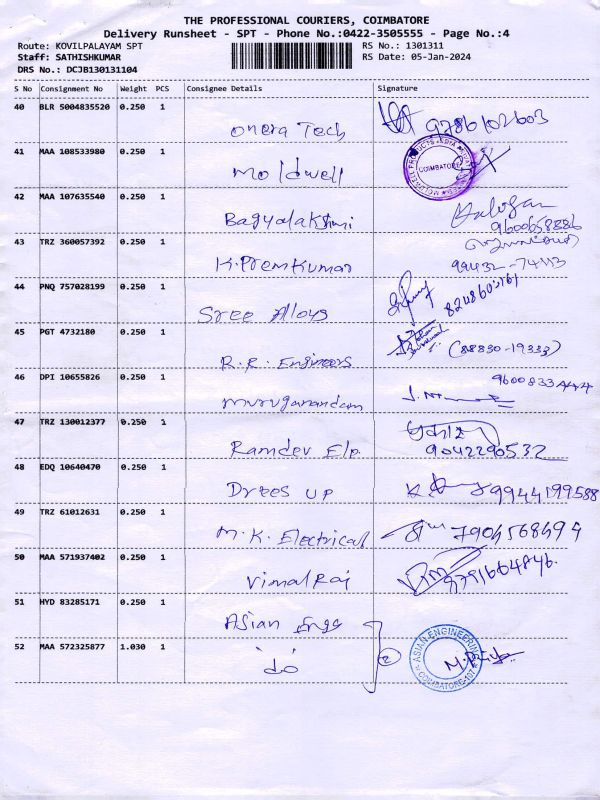 THE PROFESSIONAL COURIERS, COIMBATORE
Delivery Runsheet - SPT - Phone No.:0422-3505555 - Page No.:4
Route: KOVILPALAYAM SPT
RS No.: 1301311
Staff: SATHISHKUMAR
RS Date: 05-Jan-2024
DRS No.: DCJB130131104
S No Consignment No Weight PCS Consignee Details Signature
40 BLR 5004835520 0.250 1
Onera Tech 9786102603
41 MAA 108533980 0.250 1
Moldwell COIMBATORE
42 MAA 107635540 0.250 1
Bagyalakshmi 9600658886
43 TRZ 360057392 0.250 1
K.Premkumar 99432-74113
44 PNQ 757028199 0.250 1
Sree Alloys
45 PGT 4732180 0.250 1
R.R. Engineers (88830-19333)
46 DPI 10655826 0.250 1
9600833444
Muruganandam
47 TRZ 130012377 0.250 1
Ramdev Elp. 9042290532
48 EDQ 10640470 0.250 1
Drees UP 9944199588
49 TRZ 61012631 0.250 1
M.K. Electrical 7904568494
50 MAA 571937402 0.250 1
Vimal Raj 9791664846.
51 HYD 83285171 0.250 1
Asian Engg
52 MAA 572325877 1.030 1
do 2
ASIAN ENGINEERING
COIMBATORE-107